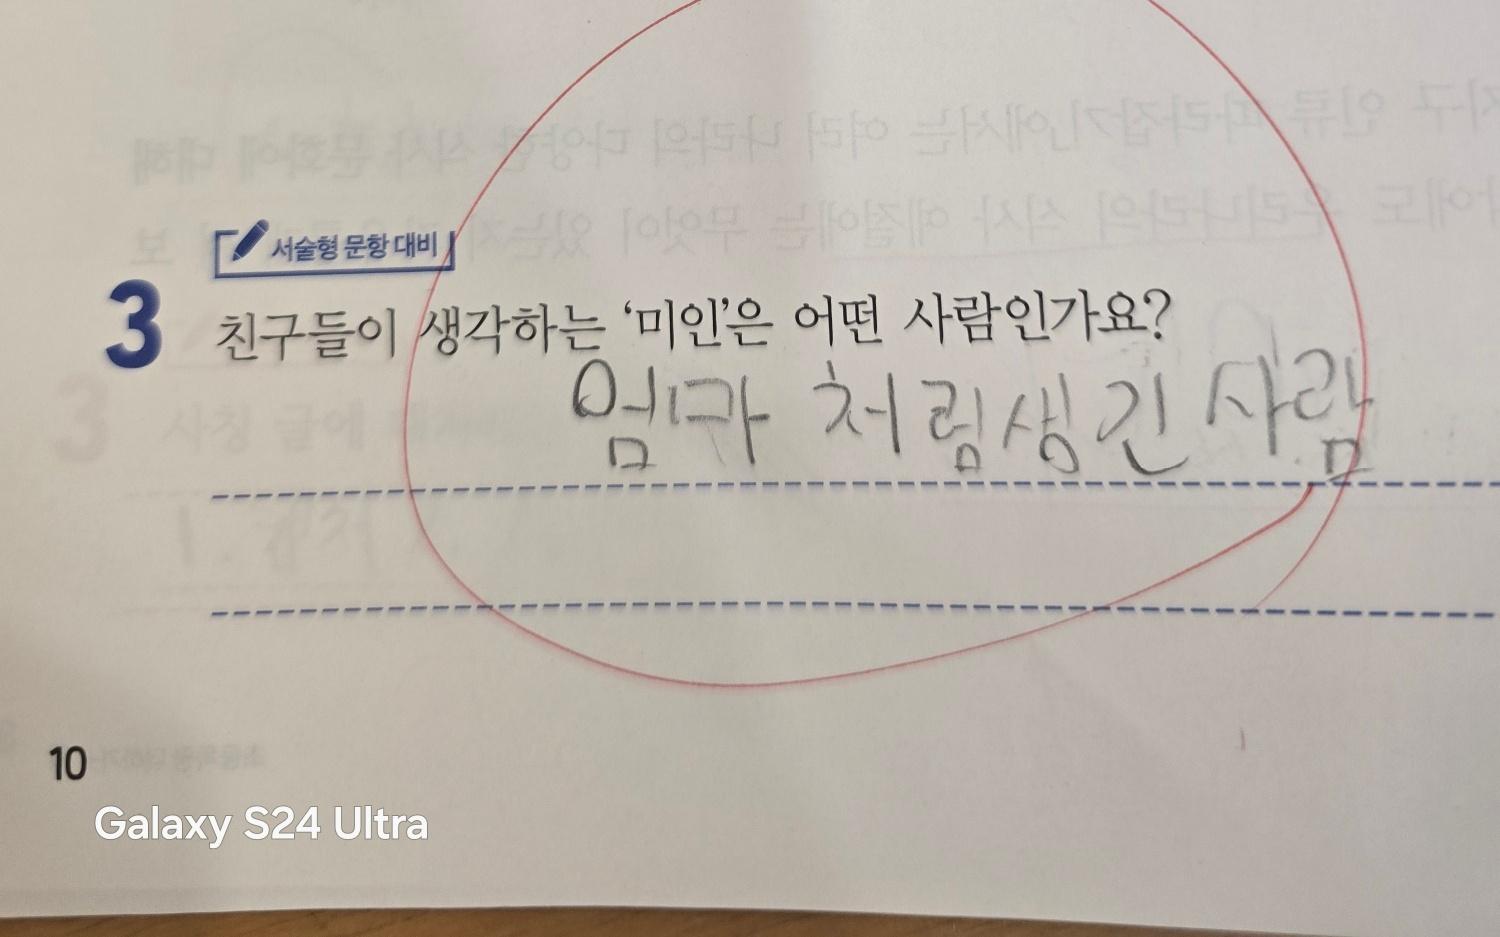 서술형 문항 대비
3 친구들이 생각하는 ‘미인’은 어떤 사람인가요?
엄마 처럼생긴 사람
10
Galaxy S24 Ultra